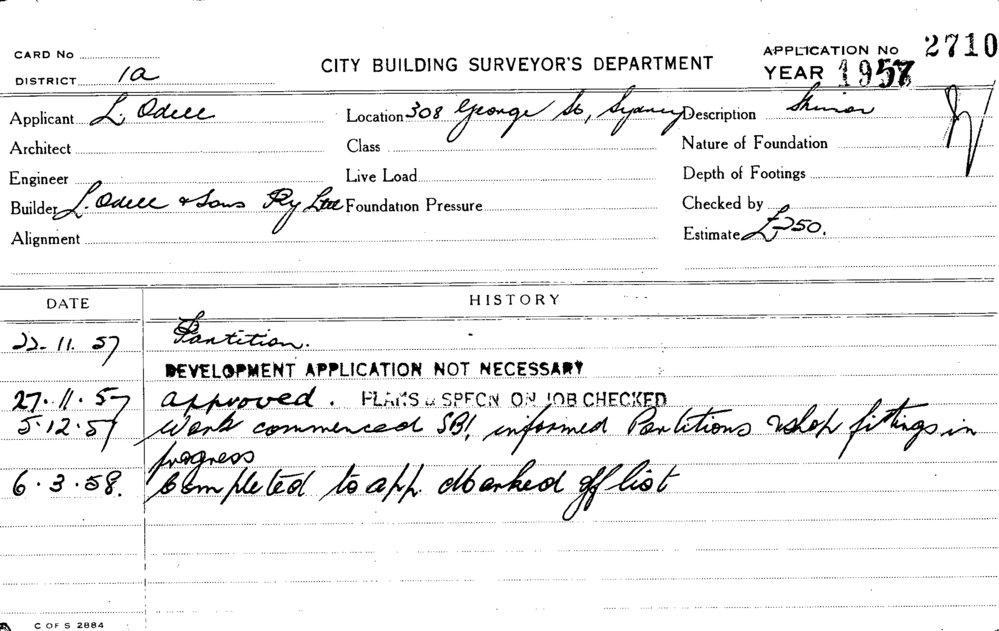 CARD No
DISTRICT 1a
CITY BUILDING SURVEYOR'S DEPARTMENT
APPLICATION No 2710
YEAR 1957
Applicant L. Odell
Location 308 George St, Sydney
Description
Architect
Class
Nature of Foundation
Engineer
Live Load
Depth of Footings
Builder L. Odell & Sons Pty Ltd
Foundation Pressure
Checked by
Alignment
Estimate £250.
DATE
HISTORY
22. 11. 57 Partition.
DEVELOPMENT APPLICATION NOT NECESSARY
27. 11. 57 approved. PLANS & SPECN ON JOB CHECKED
5. 12. 57 Work commenced SBI, informed Partitions & shop fittings in
progress
6. 3. 58. Completed to app. & marked off list
C OF S 2884